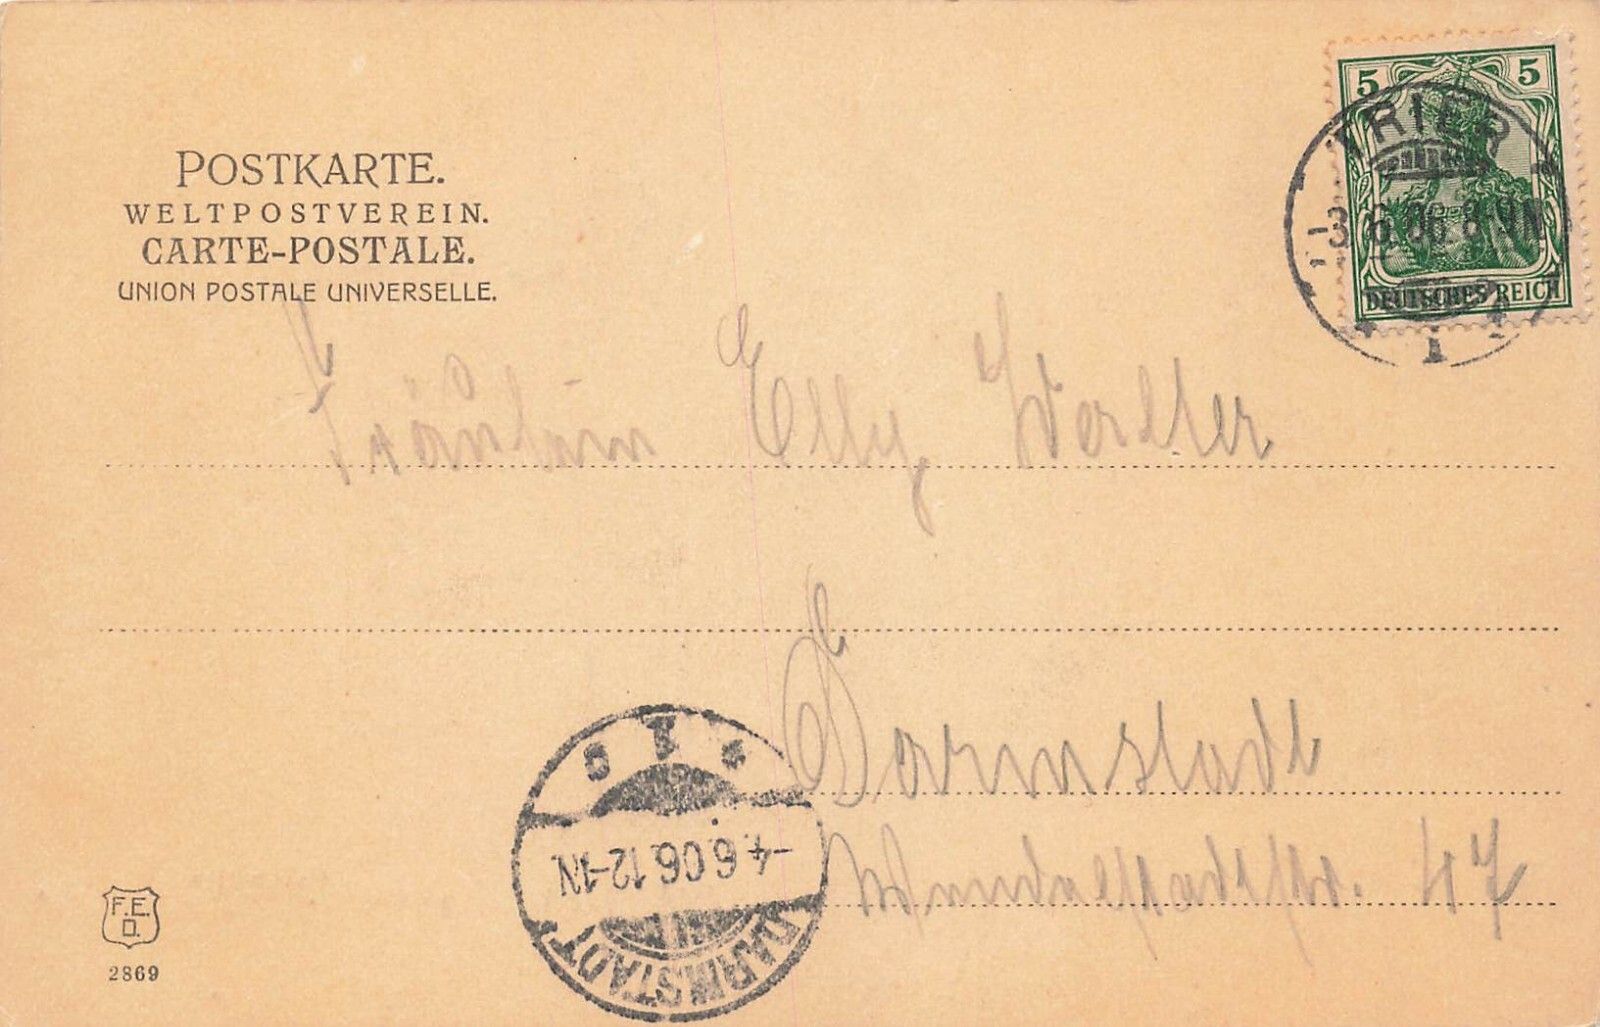 POSTKARTE.
WELTPOSTVEREIN.
CARTE-POSTALE.
UNION POSTALE UNIVERSELLE.
5 5
DEUTSCHES REICH
TRIER
3.6.06. 8-9N
1
Fräulein Elly
Darmstadt
47
* 1 c
-4.6.06.12-1N.
DARMSTADT
F.E.
D.
2869